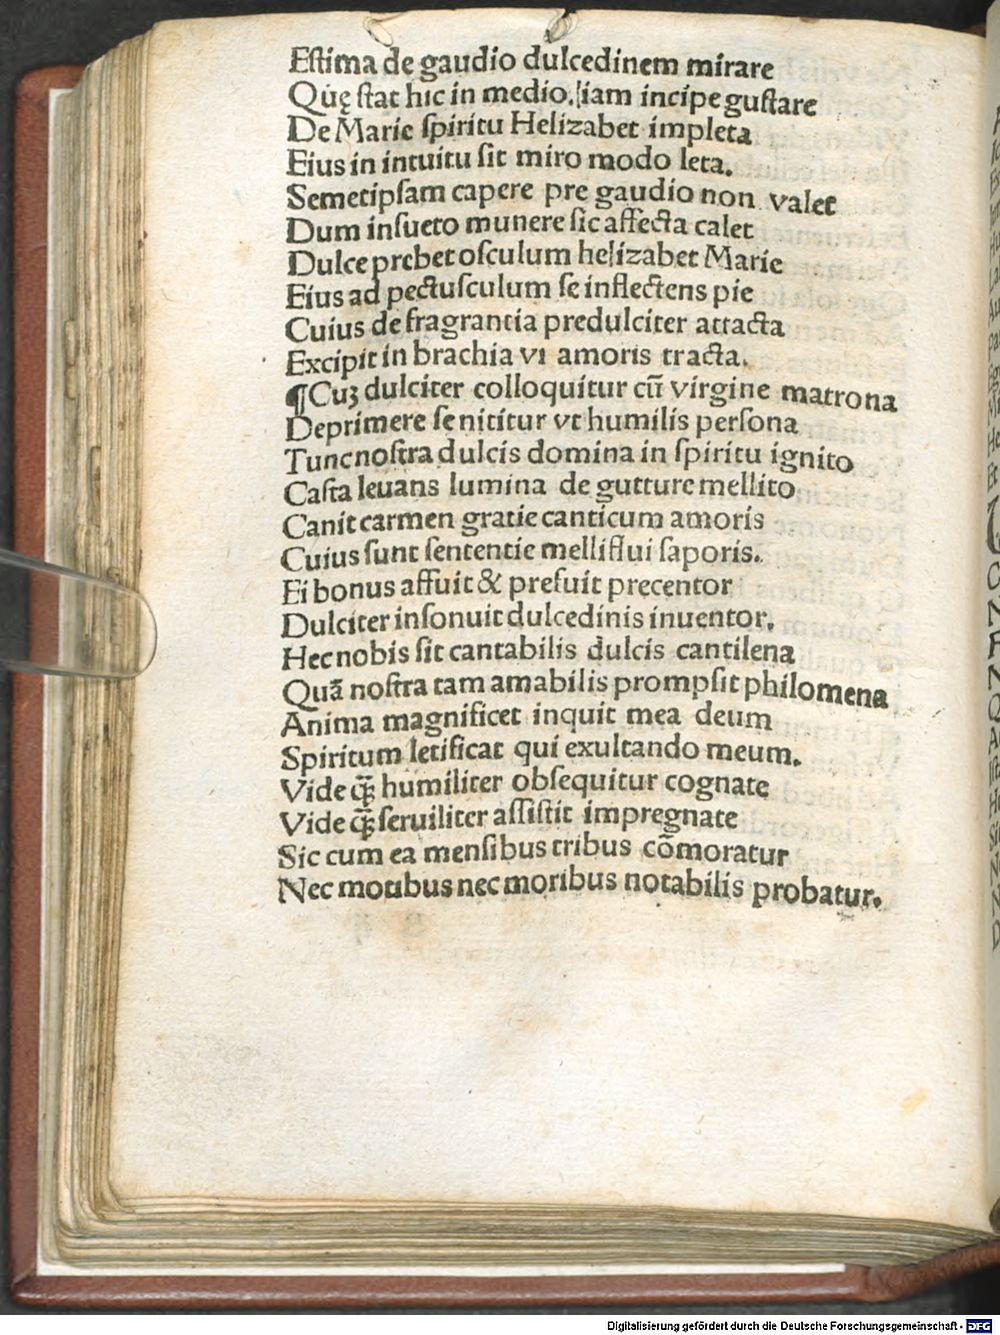 Eſtima de gaudio dulcedinem mirare
Quę ſtat hic in medio. iam incipe guſtare
De Marie ſpiritu Helizabet impleta
Eius in intuitu ſit miro modo leta.
Semetipſam capere pre gaudio non valet
Dum inſueto munere ſic affecta calet
Dulce prebet oſculum helizabet Marie
Eius ad pectuſculum ſe inflectens pie
Cuius de fragrantia predulciter attacta
Excipit in brachia vi amoris tracta.
¶Cuꝫ dulciter colloquitur cū virgine matrona
Deprimere ſe nititur vt humilis perſona
Tunc noſtra dulcis domina in ſpiritu ignito
Caſta leuans lumina de gutture mellito
Canit carmen gratie canticum amoris
Cuius ſunt ſententie melliflui ſaporis.
Ei bonus affuit & prefuit precentor
Dulciter inſonuit dulcedinis inuentor.
Hec nobis ſit cantabilis dulcis cantilena
Quā noſtra tam amabilis prompſit philomena
Anima magnificet inquit mea deum
Spiritum letificat qui exultando meum.
Vide q̄ꝫ humiliter obſequitur cognate
Vide q̄ꝫ ſeruiliter aſſiſtit impregnate
Sic cum ea menſibus tribus cōmoratur
Nec motibus nec moribus notabilis probatur.
Digitalisierung gefördert durch die Deutsche Forschungsgemeinschaft - DFG